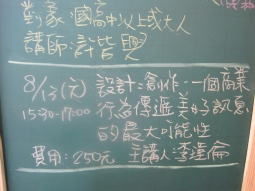 對象:國高中以上或大人
講師:許皆興
8/13(六) 設計:創作,一個商業
15:30-17:00 行為傳遞美好訊息
的最大可能性
費用:250元 主講人:李瑾倫